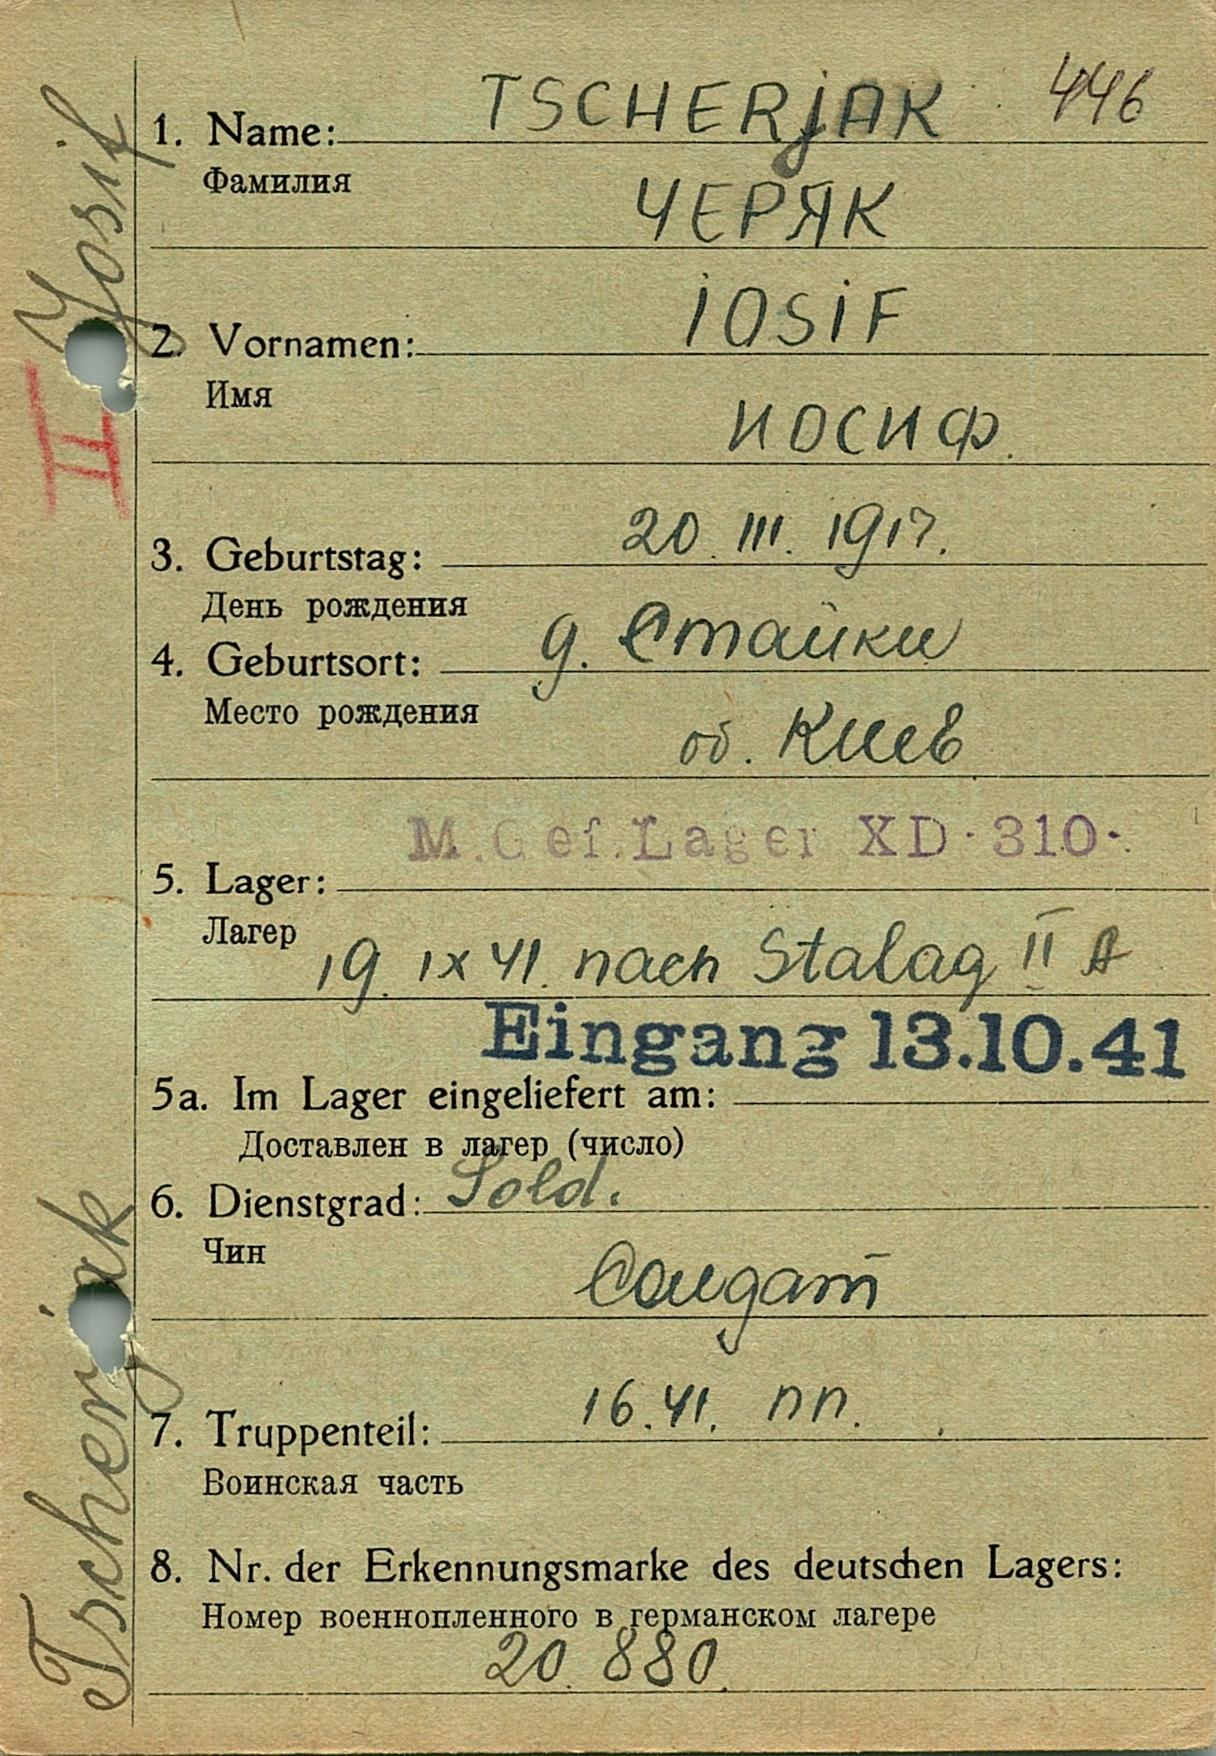 446
1. Name: TSCHERjAK
Фамилия
ЧЕРЯК
2. Vornamen: iOSiF
Имя
ИОСИФ.
3. Geburtstag: 20. III. 1917.
День рождения
4. Geburtsort: д. Стайки
Место рождения
об. Киев
M.Gef.Lager XD·310·
5. Lager:
Лагер
19. IX 41. nach Stalag II A
Eingang 13.10.41
5a. Im Lager eingeliefert am:
Доставлен в лагер (число)
6. Dienstgrad: Sold.
Чин
Солдат
7. Truppenteil: 16.41. пп.
Воинская часть
8. Nr. der Erkennungsmarke des deutschen Lagers:
Номер военнопленного в германском лагере
20.880.
Tscherjak Yosif
II